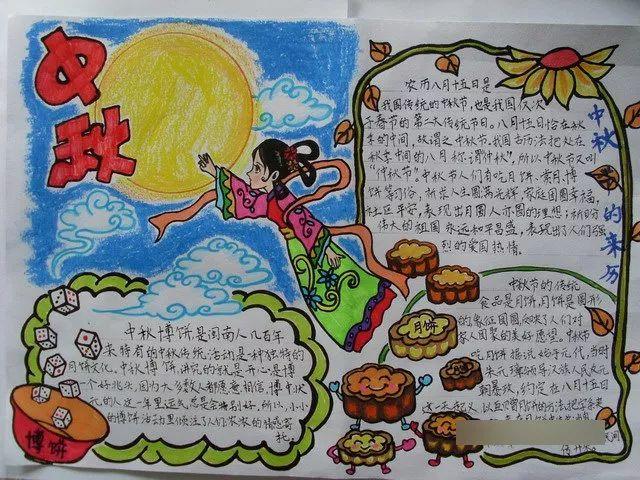 中秋
中秋的来历
农历八月十五日是
我国传统的中秋节,也是我国仅次
于春节的第二大传统节日。八月十五恰在秋
季的中间,故谓之中秋节。我国古历法把处在
秋季中间的八月称谓"仲秋",所以中秋节又叫
"仲秋节"。中秋节人们有吃月饼、赏月、博
饼等习俗,祈求人生圆满光辉,家庭团圆幸福,
社区平安,表现出月圆人亦圆的理想;祈盼
伟大的祖国永远和平昌盛,表现出了人们强
烈的爱国热情。
中秋节的传统
食品是月饼,月饼是圆形
的,象征团圆,反映了人们对
家人团聚的美好愿望。中秋节
吃月饼据说始于元代,当时
朱元璋领导汉族人民反元
朝暴政,约定在八月十五日
这一天起义
月饼
中秋博饼是闽南人几百年
来特有的中秋传统活动是一种独特的
月饼文化。中秋博饼,讲究的就是开心,是博
一个好兆头,因为大多数人都愿意相信,博中状
元的人这一年里运气总是会特别好。所以,小小
的博饼活动里倾注了人们浓浓的情感寄
托。
博饼